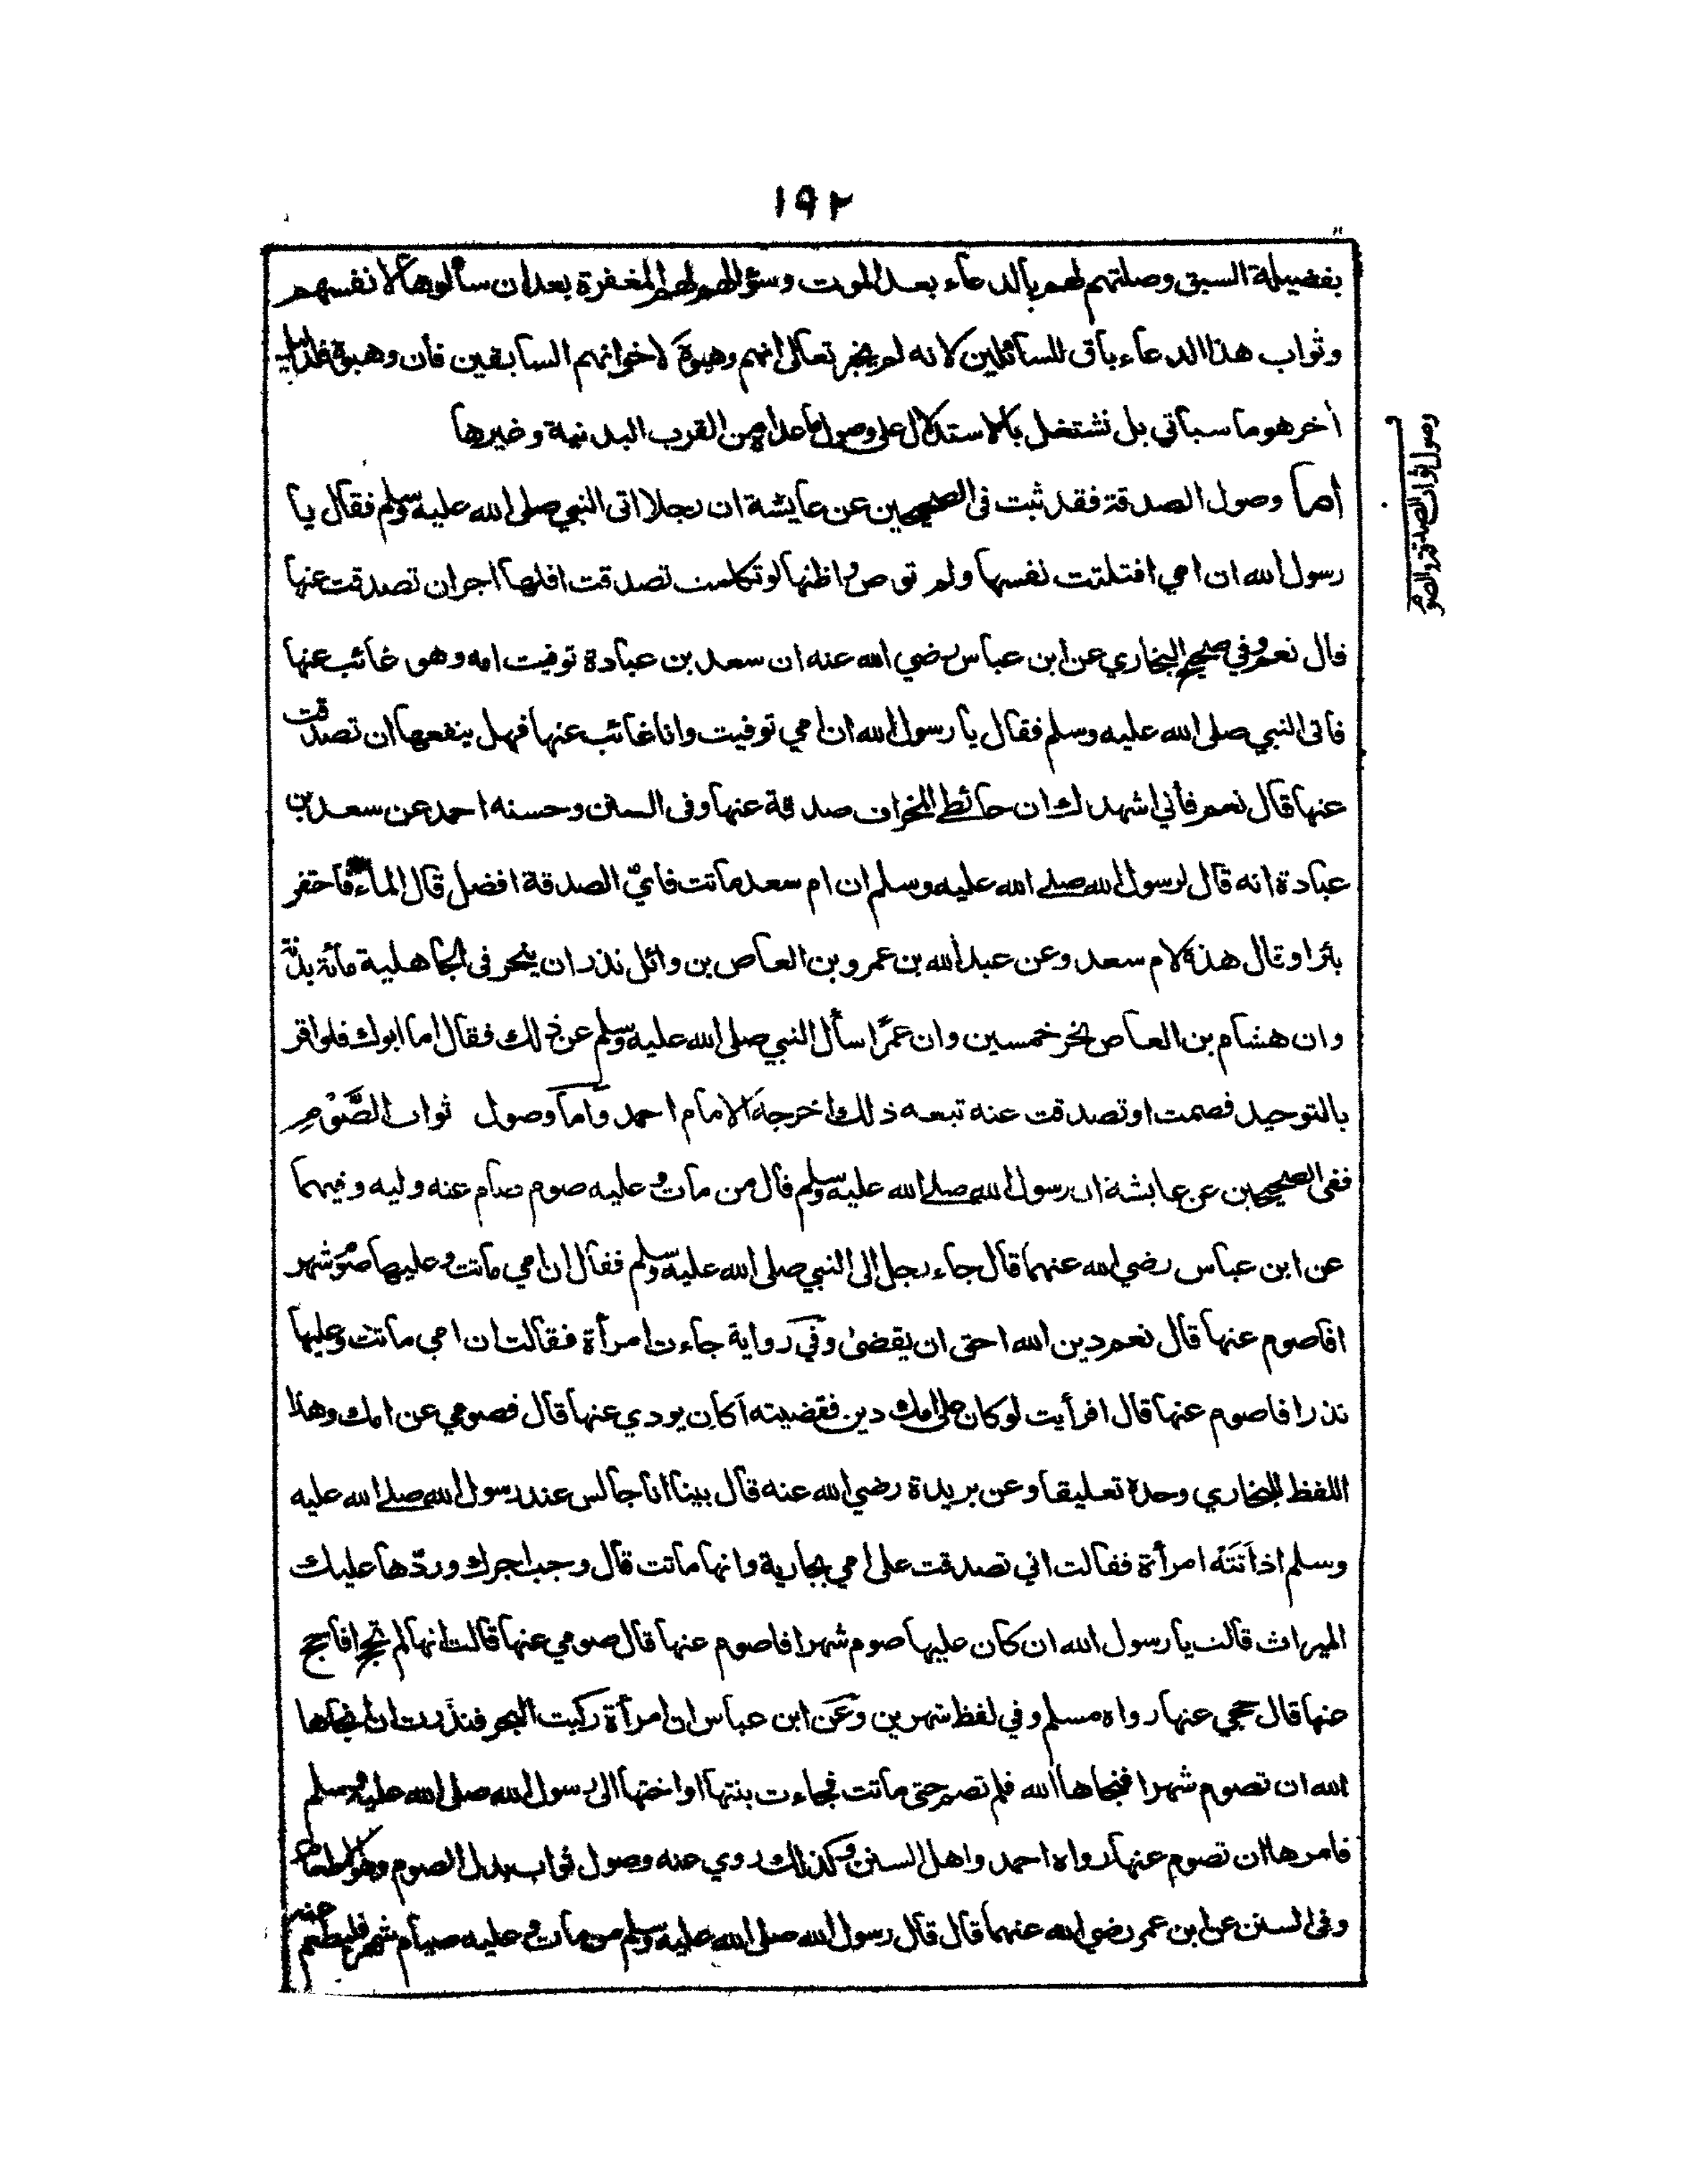 ١٩٢
بفضيلة السبق وصلتهم لهم بالدعاء بعد الموت وسؤالهم لهم المغفرة بعد ان سألوها لانفسهم
وثواب هذا الدعاء باق للسائلين لانه لم يخبر تعالى انهم وهبوة لاخوانهم السابقين فان وهبوة فلذلك
أخر هو ما سيأتي بل نشتغل بالاستدلال على وصول ما عداه من القرب البدنية وغيرها
أما وصول الصدقة فقد ثبت فى الصحيحين عن عايشة ان رجلا اتى النبي صلى الله عليه وسلم فقال يا
رسول الله ان امي افتلتت نفسها ولم توص واظنها لو تكلمت تصدقت افلها اجر ان تصدقت عنها
قال نعم وفي صحيح البخاري عن ابن عباس رضي الله عنه ان سعد بن عبادة توفيت امه وهو غائب عنها
فاتى النبي صلى الله عليه وسلم فقال يا رسول الله ان امي توفيت وانا غائب عنها فهل ينفعها ان تصدقت
عنها قال نعم فأني اشهدك ان حائطي المخراف صدقة عنها وفى السنن وحسنه احمد عن سعد بن
عبادة انه قال لرسول الله صلے الله عليه وسلم ان ام سعد ماتت فايّ الصدقة افضل قال الماء فاحتفر
بئرا وقال هذة لام سعد وعن عبد الله بن عمرو بن العاص بن وائل نذر ان ينحر فى الجاهلية مائة بدنة
وان هشام بن العاص نحر خمسين وان عمرًا سأل النبي صلى الله عليه وسلم عن ذلك فقال اما ابوك فلو اقر
بالتوحيد فصمت او تصدقت عنه تبعه ذلك اخرجه الامام احمد وأما وصول ثواب الصَّوْم
ففى الصحيحين عن عايشة ان رسول الله صلے الله عليه وسلم قال من مات وعليه صوم صام عنه وليه وفيهما
عن ابن عباس رضي الله عنهما قال جاء رجل الى النبي صلى الله عليه وسلم فقال ان امي ماتت وعليها صوم شهر
افاصوم عنها قال نعم دين الله احق ان يقضىٰ وفي رواية جاءت امرأة فقالت ان امي ماتت وعليها
نذر افاصوم عنها قال افرأيت لو كان على امك دين فقضيته أكان يودي عنها قال فصومي عن امك وهذا
اللفظ للبخاري وحدة تعليقا وعن بريدة رضي الله عنه قال بينا انا جالس عند رسول الله صلے الله عليه
وسلم اذ اتته امرأة فقالت اني تصدقت على امي بجارية وانها ماتت قال وجب اجرك وردّها عليك
الميراث قالت يا رسول الله ان كان عليها صوم شهر افاصوم عنها قال صومي عنها قالت انها لم تحج افاحج
عنها قال حجي عنها رواه مسلم وفي لفظ شهرين وعن ابن عباس ان امرأة ركبت البحر فنذرت ان نجاها
الله ان تصوم شهرا فنجاها الله فلم تصم حتى ماتت فجاءت بنتها او اختها الى رسول الله صلى الله عليه وسلم
فامرها ان تصوم عنها رواه احمد واهل السنن وكذلك روي عنه وصول ثواب بدل الصوم وهو الاطعام
وفى السنن عن ابن عمر رضي الله عنهما قال قال رسول الله صلى الله عليه وسلم من مات وعليه صيام شهر فليطعم عنه
وصول ثواب الصدقة والصوم